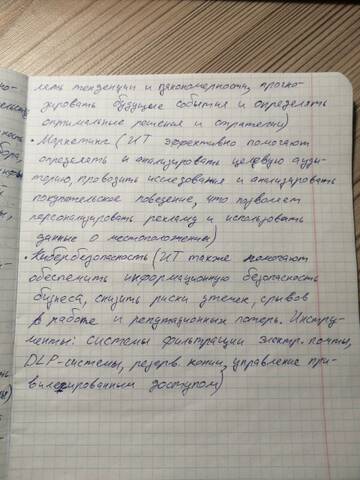 лять тенденции и закономерности, прогно-
зировать будущие события и определять
оптимальные решения и стратегии)
• Маркетинг (ИТ эффективно помогают
определять и анализировать целевую ауди-
торию, проводить исследования и анализировать
покупательское поведение, что позволяет
персонализировать рекламу и использовать
данные о местоположении)
• Кибербезопасность (ИТ также помогают
обеспечить информационную безопасность
бизнеса, снизить риски утечек, срывов
в работе и репутационных потерь. Инстру-
менты: системы фильтрации электр. почты,
DLP-системы, резерв. копии, управление при-
вилегированным доступом)